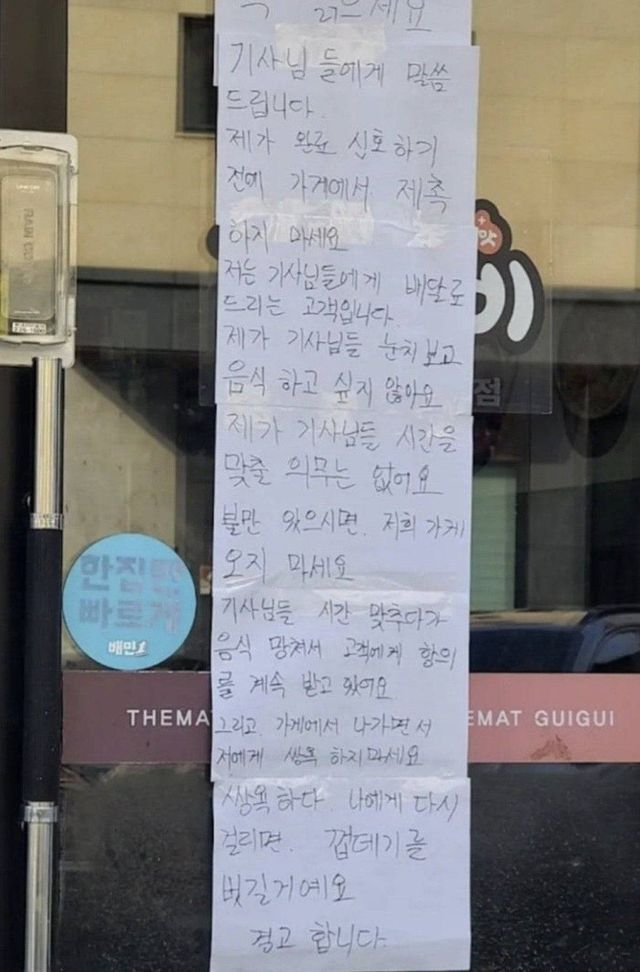 꼭 읽으세요
기사님들에게 말씀
드립니다.
제가 완료 신호하기
전에 가게에서 제촉
하지 마세요
저는 기사님들에게 배달로
드리는 고객입니다.
제가 기사님들 눈치보고
음식 하고 싶지 않아요
제가 기사님들 시간을
맞출 의무는 없어요
불만 있으시면. 저희 가게
오지 마세요
기사님들 시간 맞추다가
음식 망쳐서 고객에게 항의
를 계속 받고 있어요
그리고. 가게에서 나가면서
저에게 쌍욕 하지마세요
쌍욕하다. 나에게 다시
걸리면. 껍데기를
벗길거예요
경고 합니다.
맛
비
점
한집만
빠르게
배민1
THEMA
EMAT GUIGUI